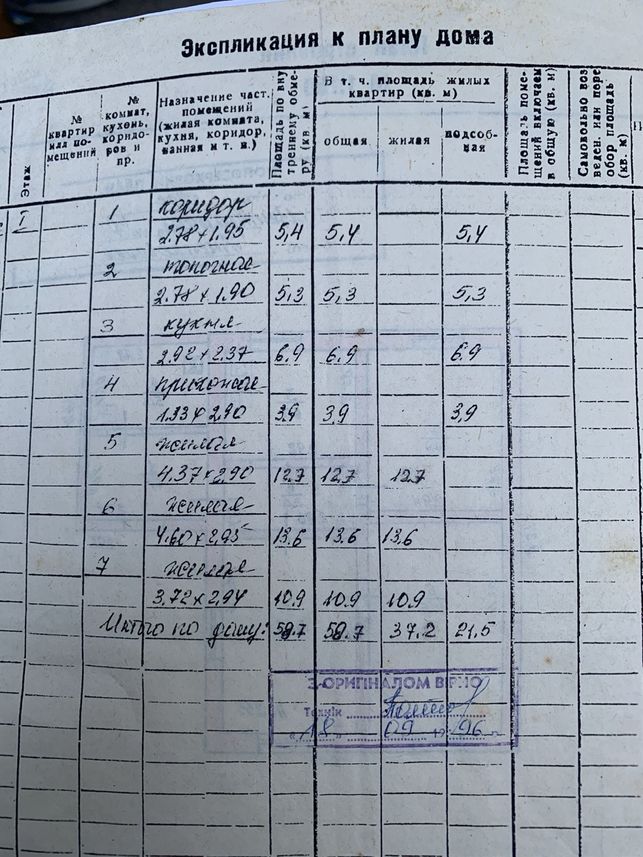 Экспликация к плану дома
Этаж
№ квартир или помещений
№ комнат, кухонь, коридоров и пр.
Назначение част. помещений (жилая комната, кухня, коридор, ванная и т. п.)
Площадь по внутреннему обмеру (кв м)
В т. ч. площадь жилых квартир (кв. м)
общая
жилая
подсобная
Площадь помещений включаем в общую (кв. м)
Самовольно возведен. или переобор площадь (кв. м)
I 1 коридор
2.78 х 1.95 5,4 5,4 5,4
2 топочная
2.78 х 1.90 5,3 5,3 5,3
3 кухня
2.92 х 2.37 6.9 6.9 6.9
4 прихожая
1.33 х 2.90 3,9 3,9 3,9
5 жилая
4.37 х 2.90 12.7 12.7 12.7
6 жилая
4.60 х 2.95 13.6 13.6 13.6
7 жилая
3.72 х 2.94 10.9 10.9 10.9
Итого по дому: 58.7 58.7 37.2 21.5
З ОРИГІНАЛОМ ВІРНО
Технік
"18" 09 19 96